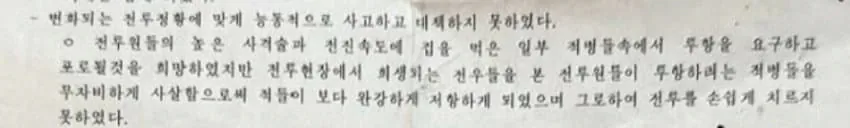 - 변화되는 전투정황에 맞게 능동적으로 사고하고 대책하지 못하였다.
ㅇ 전투원들의 높은 사격술과 전진속도에 겁을 먹은 일부 적병들속에서 투항을 요구하고
포로될것을 희망하였지만 전투현장에서 희생되는 전우들을 본 전투원들이 투항하려는 적병들을
무자비하게 사살함으로써 적들이 보다 완강하게 저항하게 되였으며 그로하여 전투를 손쉽게 치르지
못하였다.